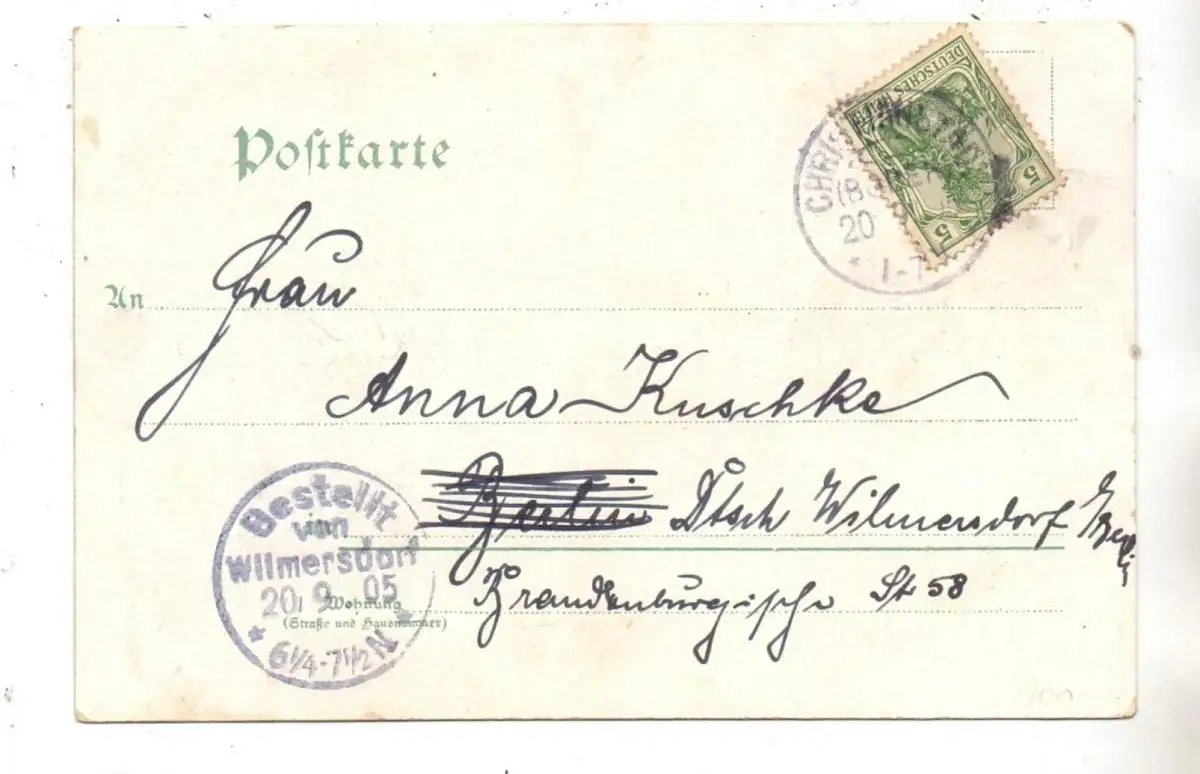 Postkarte
DEUTSCHES REICH
5 5
CHRIS
(B
20
* 1-7
An Frau
Anna Kuschke
Berlin Dtsch Wilmersdorf b/Berlin
Brandenburgische St 58
Wohnung
(Straße und Hausnummer)
Bestellt
von
Wilmersdorf
20/9 05
* 6¼-7½ N *